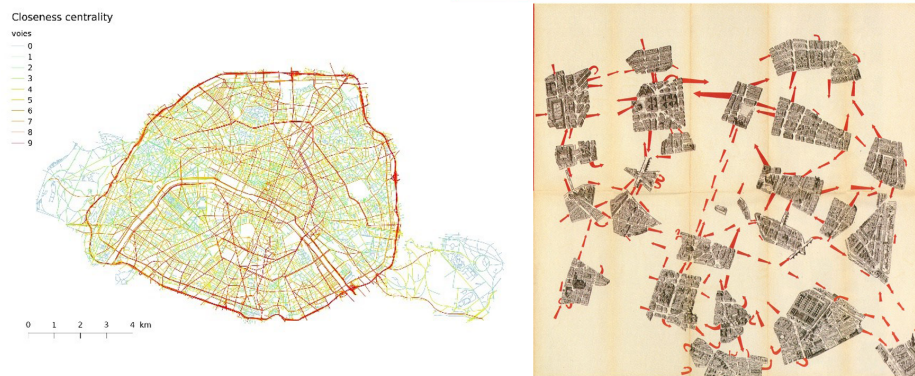 Closeness centrality
voies
0
1
2
3
4
5
6
7
8
9
0 1 2 3 4 km